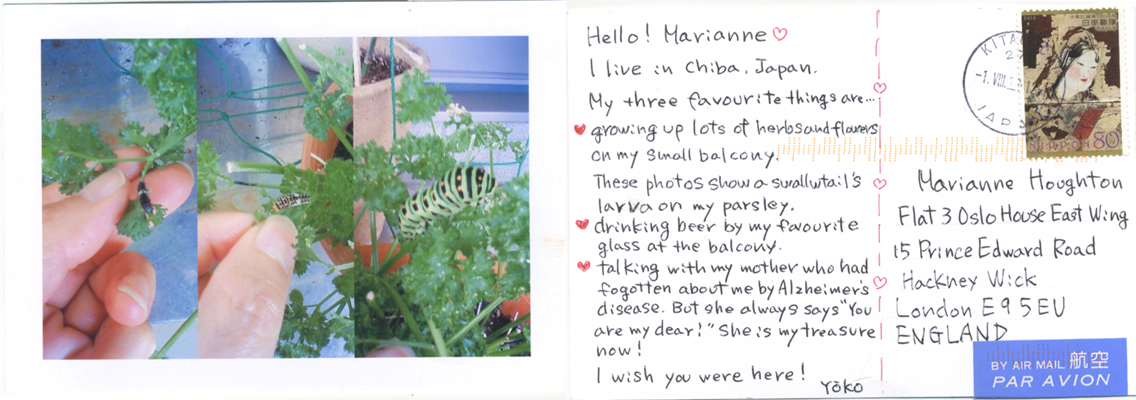 Hello! Marianne ♡
I live in Chiba, Japan.
My three favourite things are...
♥ growing up lots of herbs and flowers
on my small balcony.
These photos show a swallwtail's
larva on my parsley.
♥ drinking beer by my favourite
glass at the balcony.
♥ talking with my mother who had
fogotten about me by Alzheimer's
disease. But she always says "You
are my dear!" She is my treasure
now!
I wish you were here!
Yōko
日本郵便
NIPPON 80
Marianne Houghton
Flat 3 Oslo House East Wing
15 Prince Edward Road
Hackney Wick
London E9 5EU
ENGLAND
BY AIR MAIL 航空
PAR AVION